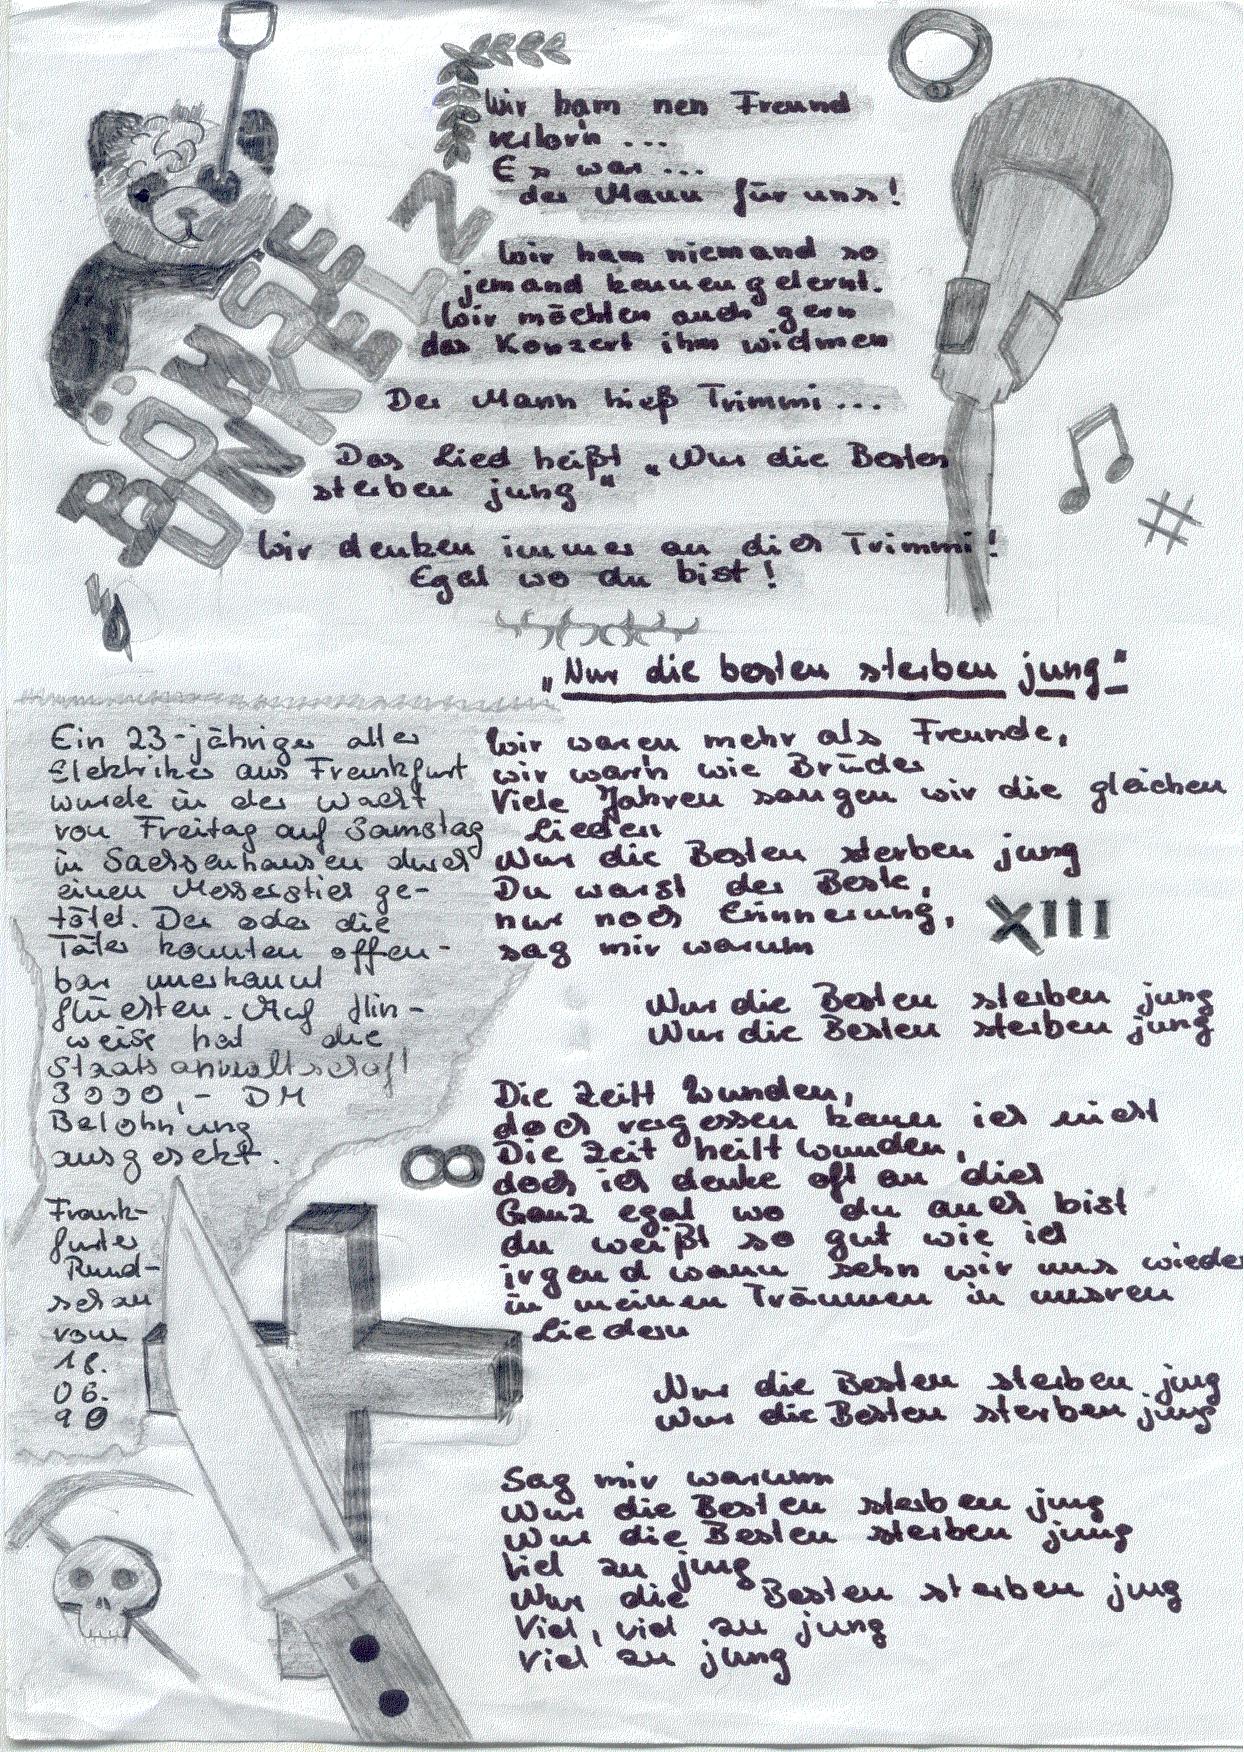 BÖHSE
ONKELZ
Wir ham nen Freund
verlor'n ...
Es war ...
der Mann für uns!
Wir ham niemand so
jemand kennengelernt.
Wir möchten auch gern
das Konzert ihm widmen
Der Mann hieß Trimmi ...
Das Lied heißt „Nur die Besten
sterben jung"
Wir denken immer an dich Trimmi!
Egal wo du bist!
„Nur die besten sterben jung"
Ein 23-jähriger alter
Elektriker aus Frankfurt
wurde in der Nacht
von Freitag auf Samstag
in Sachsenhausen durch
einen Messerstich ge-
tötet. Der oder die
Täter konnten offen-
bar unerkannt
flüchten. Auf Hin-
weise hat die
Staatsanwaltschaft
3000,- DM
Belohnung
ausgesetzt.
Frank-
furter
Rund-
schau
vom
18.
06.
90
Wir waren mehr als Freunde,
wir warn wie Brüder
Viele Jahren sangen wir die gleichen
Liedern
Nur die Besten sterben jung
Du warst der Beste,
nur noch Erinnerung,
sag mir warum
XIII
Nur die Besten sterben jung
Nur die Besten sterben jung
Die Zeitt Wunden,
doch vergessen kann ich nicht
Die Zeit heilt wunden,
doch ich denke oft an dich
Ganz egal wo du auch bist
du weißt so gut wie ich
irgendwann sehn wir uns wieder
in meinen Träumen in unsren
Liedern
∞
Nur die Besten sterben jung
Nur die Besten sterben jung
Sag mir warum
Nur die Besten sterben jung
Nur die Besten sterben jung
Viel zu jung
Nur die Besten sterben jung
Viel, viel zu jung
Viel zu jung